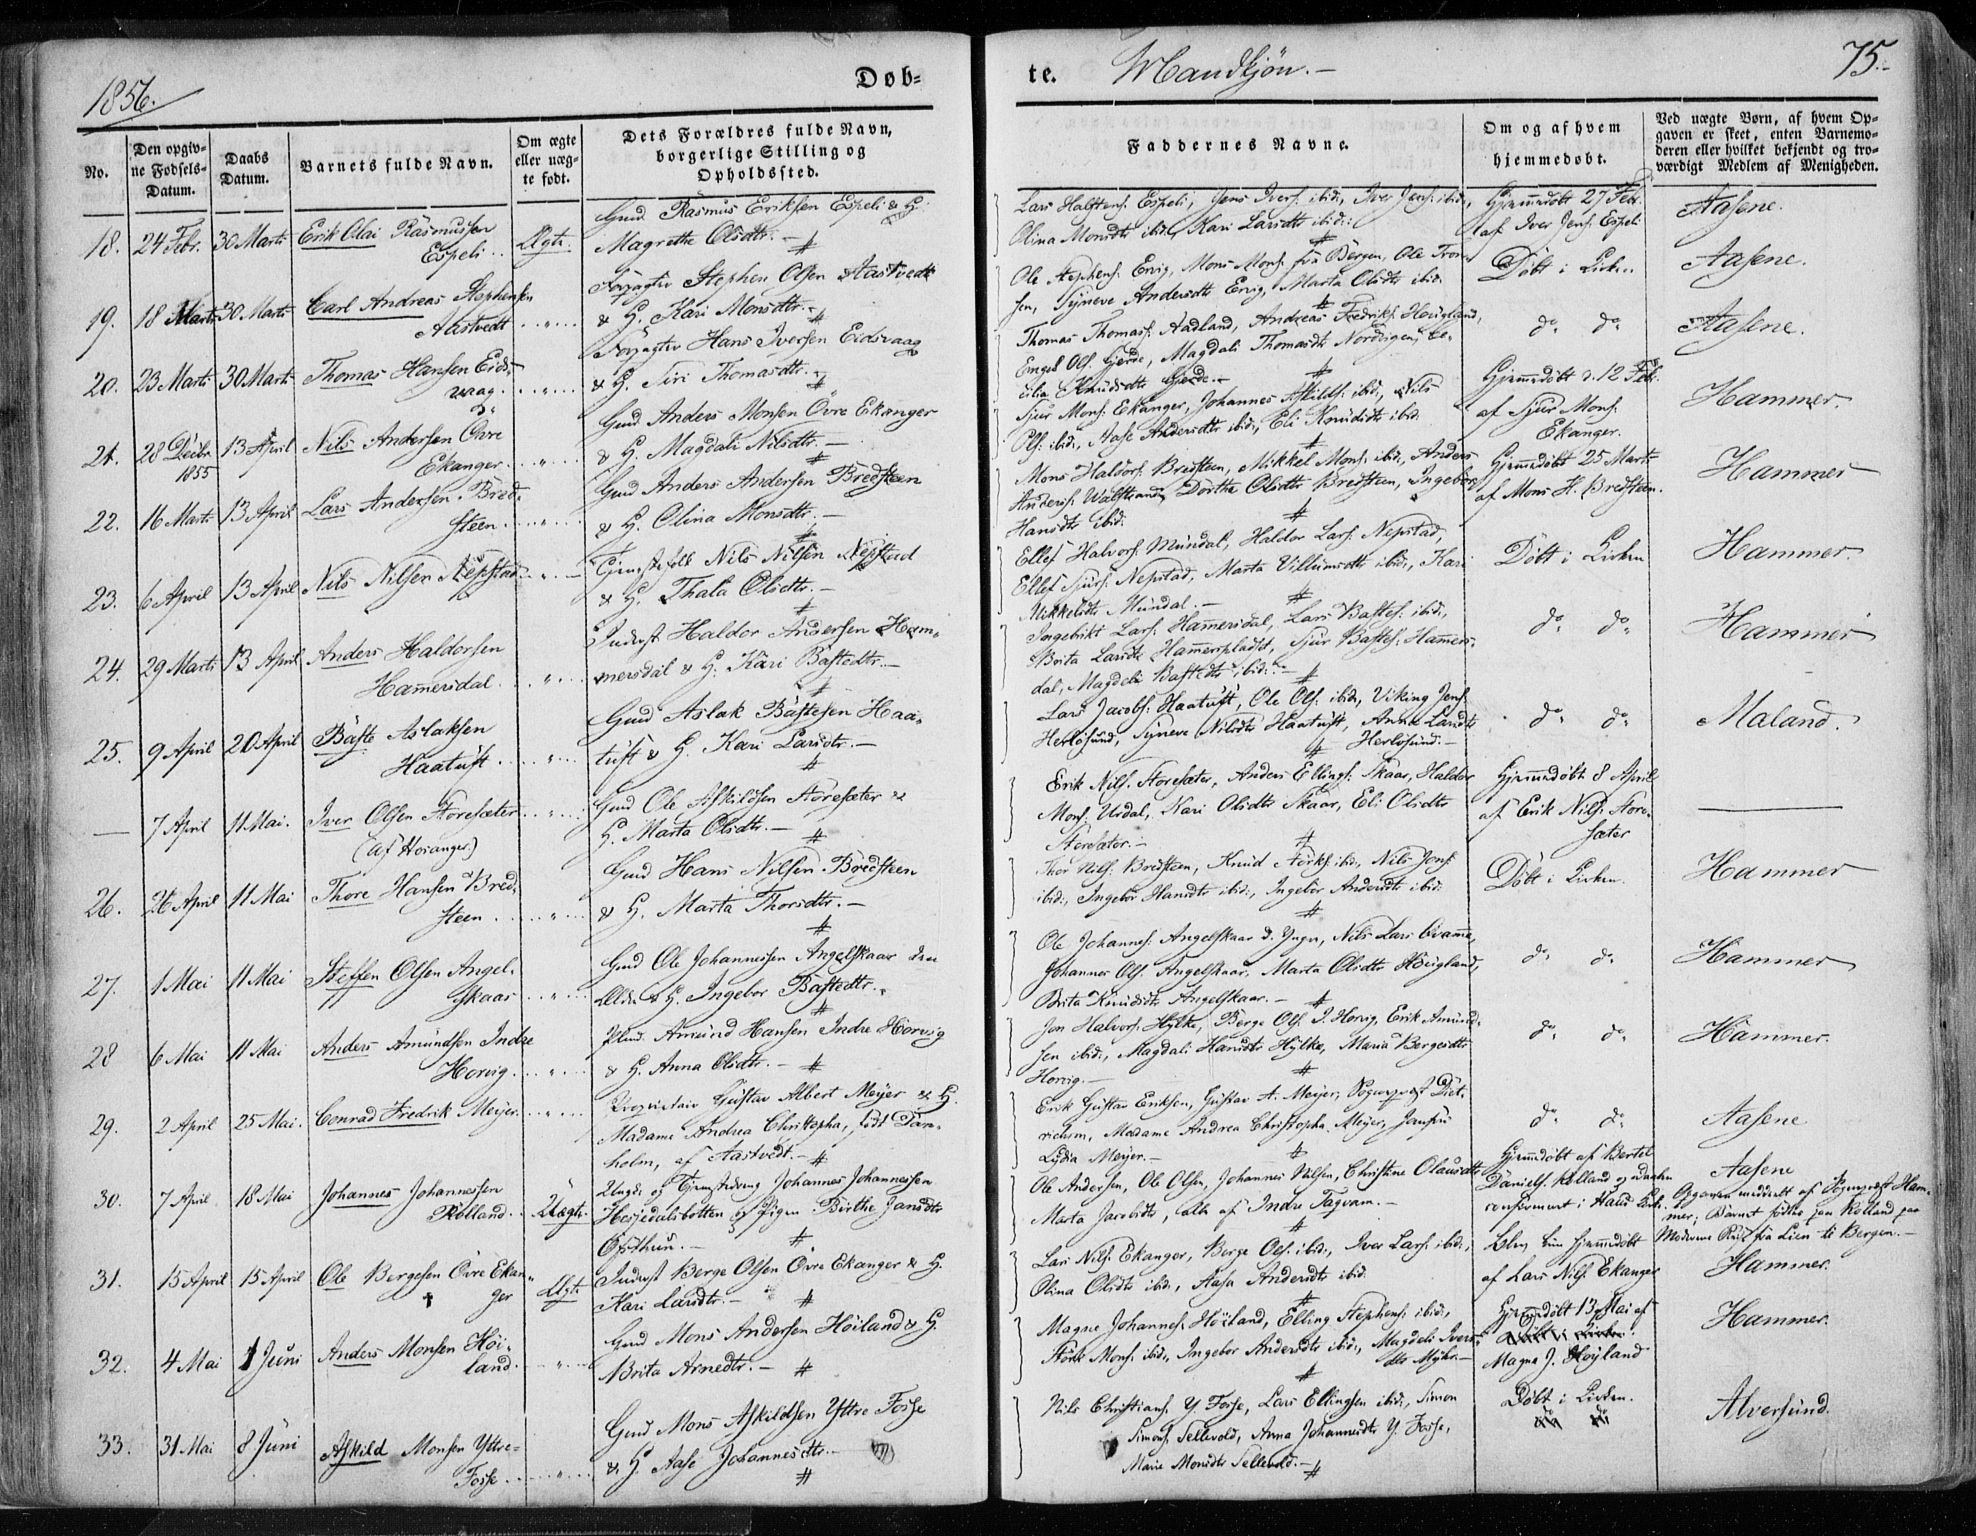 1856.
Døb=
te. Mandkjøn.-
75.-
No.
Den opgiv-
ne Fødsels-
Datum.
Daabs
Datum.
Barnets fulde Navn.
Om ægte
eller uæg-
te født.
Dets Forældres fulde Navn,
borgerlige Stilling og
Opholdssted.
Faddernes Navne.
Om og af hvem
hjemmedøbt.
Ved uægte Børn, af hvem Op-
gaven er skeet, enten Barnemo-
deren eller hvilket bekjendt og tro-
værdigt Medlem af Menigheden.
18. 24 Febr. 30 Marts Erik Olai Rasmussen
Espeli
Ægte
Gmd Rasmus Eriksen Espeli & H.
Magrethe Olsdtr.-
Lars Halstens. Espeli, Jens Ivers. ibid:, Iver Jens. ibid:,
Olina Monsdtr ibid:, Kari Larsdtr ibid:
Hjemmedøbt 27 Febr.
af Iver Jens. Espeli
Aasene.
19. 18 Marts 30 Marts Carl Andreas Stephensen
Aastvedt
Stephen Olsen Aastvedt
& H. Kari Monsdtr.-
Ole Stephens. Ervig, Mons Mons. fra Bergen, Ole Iver-
sen, Synneve Andersdtr Ervig, Marta Olsdtr ibid.
Døbt i Kirken
Aasene.
20. 23 Marts 30 Marts Thomas Hansen Eids-
vaag
Hans Iversen Eidsvaag
& H. Siri Thomasdtr.
Thomas Thomas. Aadland, Andreas Fredriks. Hougland,
Engel Ols. Gjerde, Magdali Thomasdtr Nordvigen, Ce-
cilia Knudsdtr Gjerde.-
do do
Aasene.
21. 28 Decbr 1855 13 April Nils Andersen Øvre
Ekanger
Gmd Anders Monsen Øvre Ekanger
& H. Magdali Nilsdtr.-
Sjur Mons. Ekanger, Johannes Askilds. ibid:, Nils
Ols. ibid:, Aase Andersdtr ibid:, Eli Knudsdtr ibid.
Hjemmedøbt d. 12 Febr.
af Sjur Mons.
Ekanger.
Hammer.
22. 16 Marts 13 April Lars Andersen Bred-
steen
Gmd Anders Andersen Bredsteen
& H. Olina Monsdtr.-
Mons Haldors. Bredsteen, Mikkel Mons. ibid:, Anders
Anders. Walestrand, Dorthe Olsdtr Bredsteen, Ingebor
Hansdtr ibid.
Hjemmedøbt 25 Marts
af Mons H. Bredsteen.
Hammer
23. 6 April 13 April Nils Nilsen Nepstad
Nils Nilsen Nepstad
& H. Thala Olsdtr.-
Ellef Halvors. Mundal, Haldor Lars. Nepstad,
Ellef Sjurs. Nepstad, Marta Villumsdtr ibid:, Kari
Mikkelsdtr Mundal.-
Døbt i Kirken
Hammer
24. 29 Marts 13 April Anders Haldorsen
Hamersdal
Inderst Haldor Andersen Ham-
mersdal & H. Kari Bastedtr.-
Ingebrikt Lars. Hammersdal, Lars Bastes. ibid:,
Brita Larsdtr Hammerpladset, Sjur Bastes. Hammers-
dal, Magdeli Bastedtr ibid:
do do
Hammer
25. 9 April 20 April Baste Aslaksen
Haatuft
Gmd Aslak Bastesen Haa-
tuft & H. Kari Larsdtr.-
Lars Jacobs. Haatuft, Ole Ols. ibid:, Viking Jens.
Herlosund, Synneve Nilsdtr Haatuft, Anna Larsdtr
Herlosund.-
do do
Maland.
— 7 April 11 Mai. Iver Olsen Storesæter
(af Hosanger)
Gmd Ole Askildsen Storesæter &
H. Marta Olsdtr.-
Erik Nils. Storesæter, Anders Ellings. Skaar, Haldor
Mons. Urdal, Kari Olsdtr Skaar, Eli Olsdtr
Storesæter.-
Hjemmedøbt 8 April
af Erik Nils. Store-
sæter
26. 26 April 11 Mai Thore Hansen Bred-
steen
Gmd Hans Nilsen Bredsteen
& H. Marta Thorsdtr.-
Thor Nils. Bredsteen, Knud Størks. ibid:, Nils Jens.
ibid:, Ingebor Hansdtr ibid:, Ingebor Andersdtr ibid.
Døbt i Kirken.
Hammer
27. 1 Mai 11 Mai Steffen Olsen Angel-
skaar
Gmd Ole Johannessen Angelskaar den
Ældre & H. Ingebor Bastedtr.
Ole Johannes. Angelskaar d. Yngre, Nils Lars. Qvamme,
Johannes Ols. Angelskaar, Marta Olsdtr Hougland,
Brita Knudsdtr Angelskaar.-
do do
Hammer
28 6 Mai 11 Mai Anders Amundsen Indre
Horvig
Plmd. Amund Hansen Indre Horvig
& H. Anna Olsdtr.-
Jon Halvors. Hylke, Berge Ols. I. Horvig, Erik Amund-
sen ibid:, Magdali Hansdtr Hylke, Maria Bergesdtr
Horvig.-
do do
Hammer.
29. 2 April 25 Mai. Conrad Fredrik Meyer
Proprietair Gustav Albert Meyer & H.
Madame Andrea Christopha, født Dan-
holm, af Aastvedt.-
Erik Gustav Eriksen, Gustav A. Meyer, Sogneprest Diet-
richson, Madame Andrea Christopha Meyer, Jomfru
Lydia Meyer.-
do do
Aasene
30. 7 April 18 Mai Johannes Johannessen
Rolland
Uægte
Ungk. og Tjenestedreng Johannes Johannessen
Hesjedalsbotten og Pigen Birthe Jansdtr
Ole Andersen, Ole Olsen, Johannes Nilsen, Christine Olausdtr
Marta Jacobsdtr, alle af Indre Tagvam.-
Hjemmedøbt af Bertel
Daniels. Rolland og Daaben
confirmeret i Haus Kirke
Aasene
Opgaven meddeelt af Sogneprest Ham-
mer; Barnet født paa Rolland paa
Moderens Reise fra Lien til Bergen.-
31. 15 April 15 April Ole Bergesen Øvre Ekan-
ger
†
Ægte
Inderst Berge Olsen Øvre Ekanger & H.
Kari Larsdtr.-
Lars Nils. Ekanger, Berge Ols. ibid:, Iver Lars. ibid:,
Olina Olsdtr ibid:, Aasa Andersdtr ibid.
Blev kun hjemmedøbt
af Lars Nils. Ekanger
Hammer.
32. 4 Mai 1 Juni Anders Monsen Høi-
land
Gmd Mons Andersen Høiland & H.
Brita Arnedtr.-
Magne Johannes. Høiland, Elling Stephens. ibid:,
Størk Mons. ibid:, Ingebor Andersdtr ibid:, Magdeli Ivers-
dtr Myhr.-
Hjemmedøbt 13 Mai af
Magne J. Høyland
Hammer.
33. 31 Mai 8 Juni Askild Monsen Yttre-
Fosse
Gmd Mons Askildsen Yttre Fosse
& H. Aase Johannesdtr.-
Nils Christians. Y. Fosse, Lars Ellingsen ibid:, Simon
Simons. Sellevold, Anna Johannesdtr Y. Fosse,
Marie Monsdtr Sellevold.-
Døbt i Kirken.
Alversund.